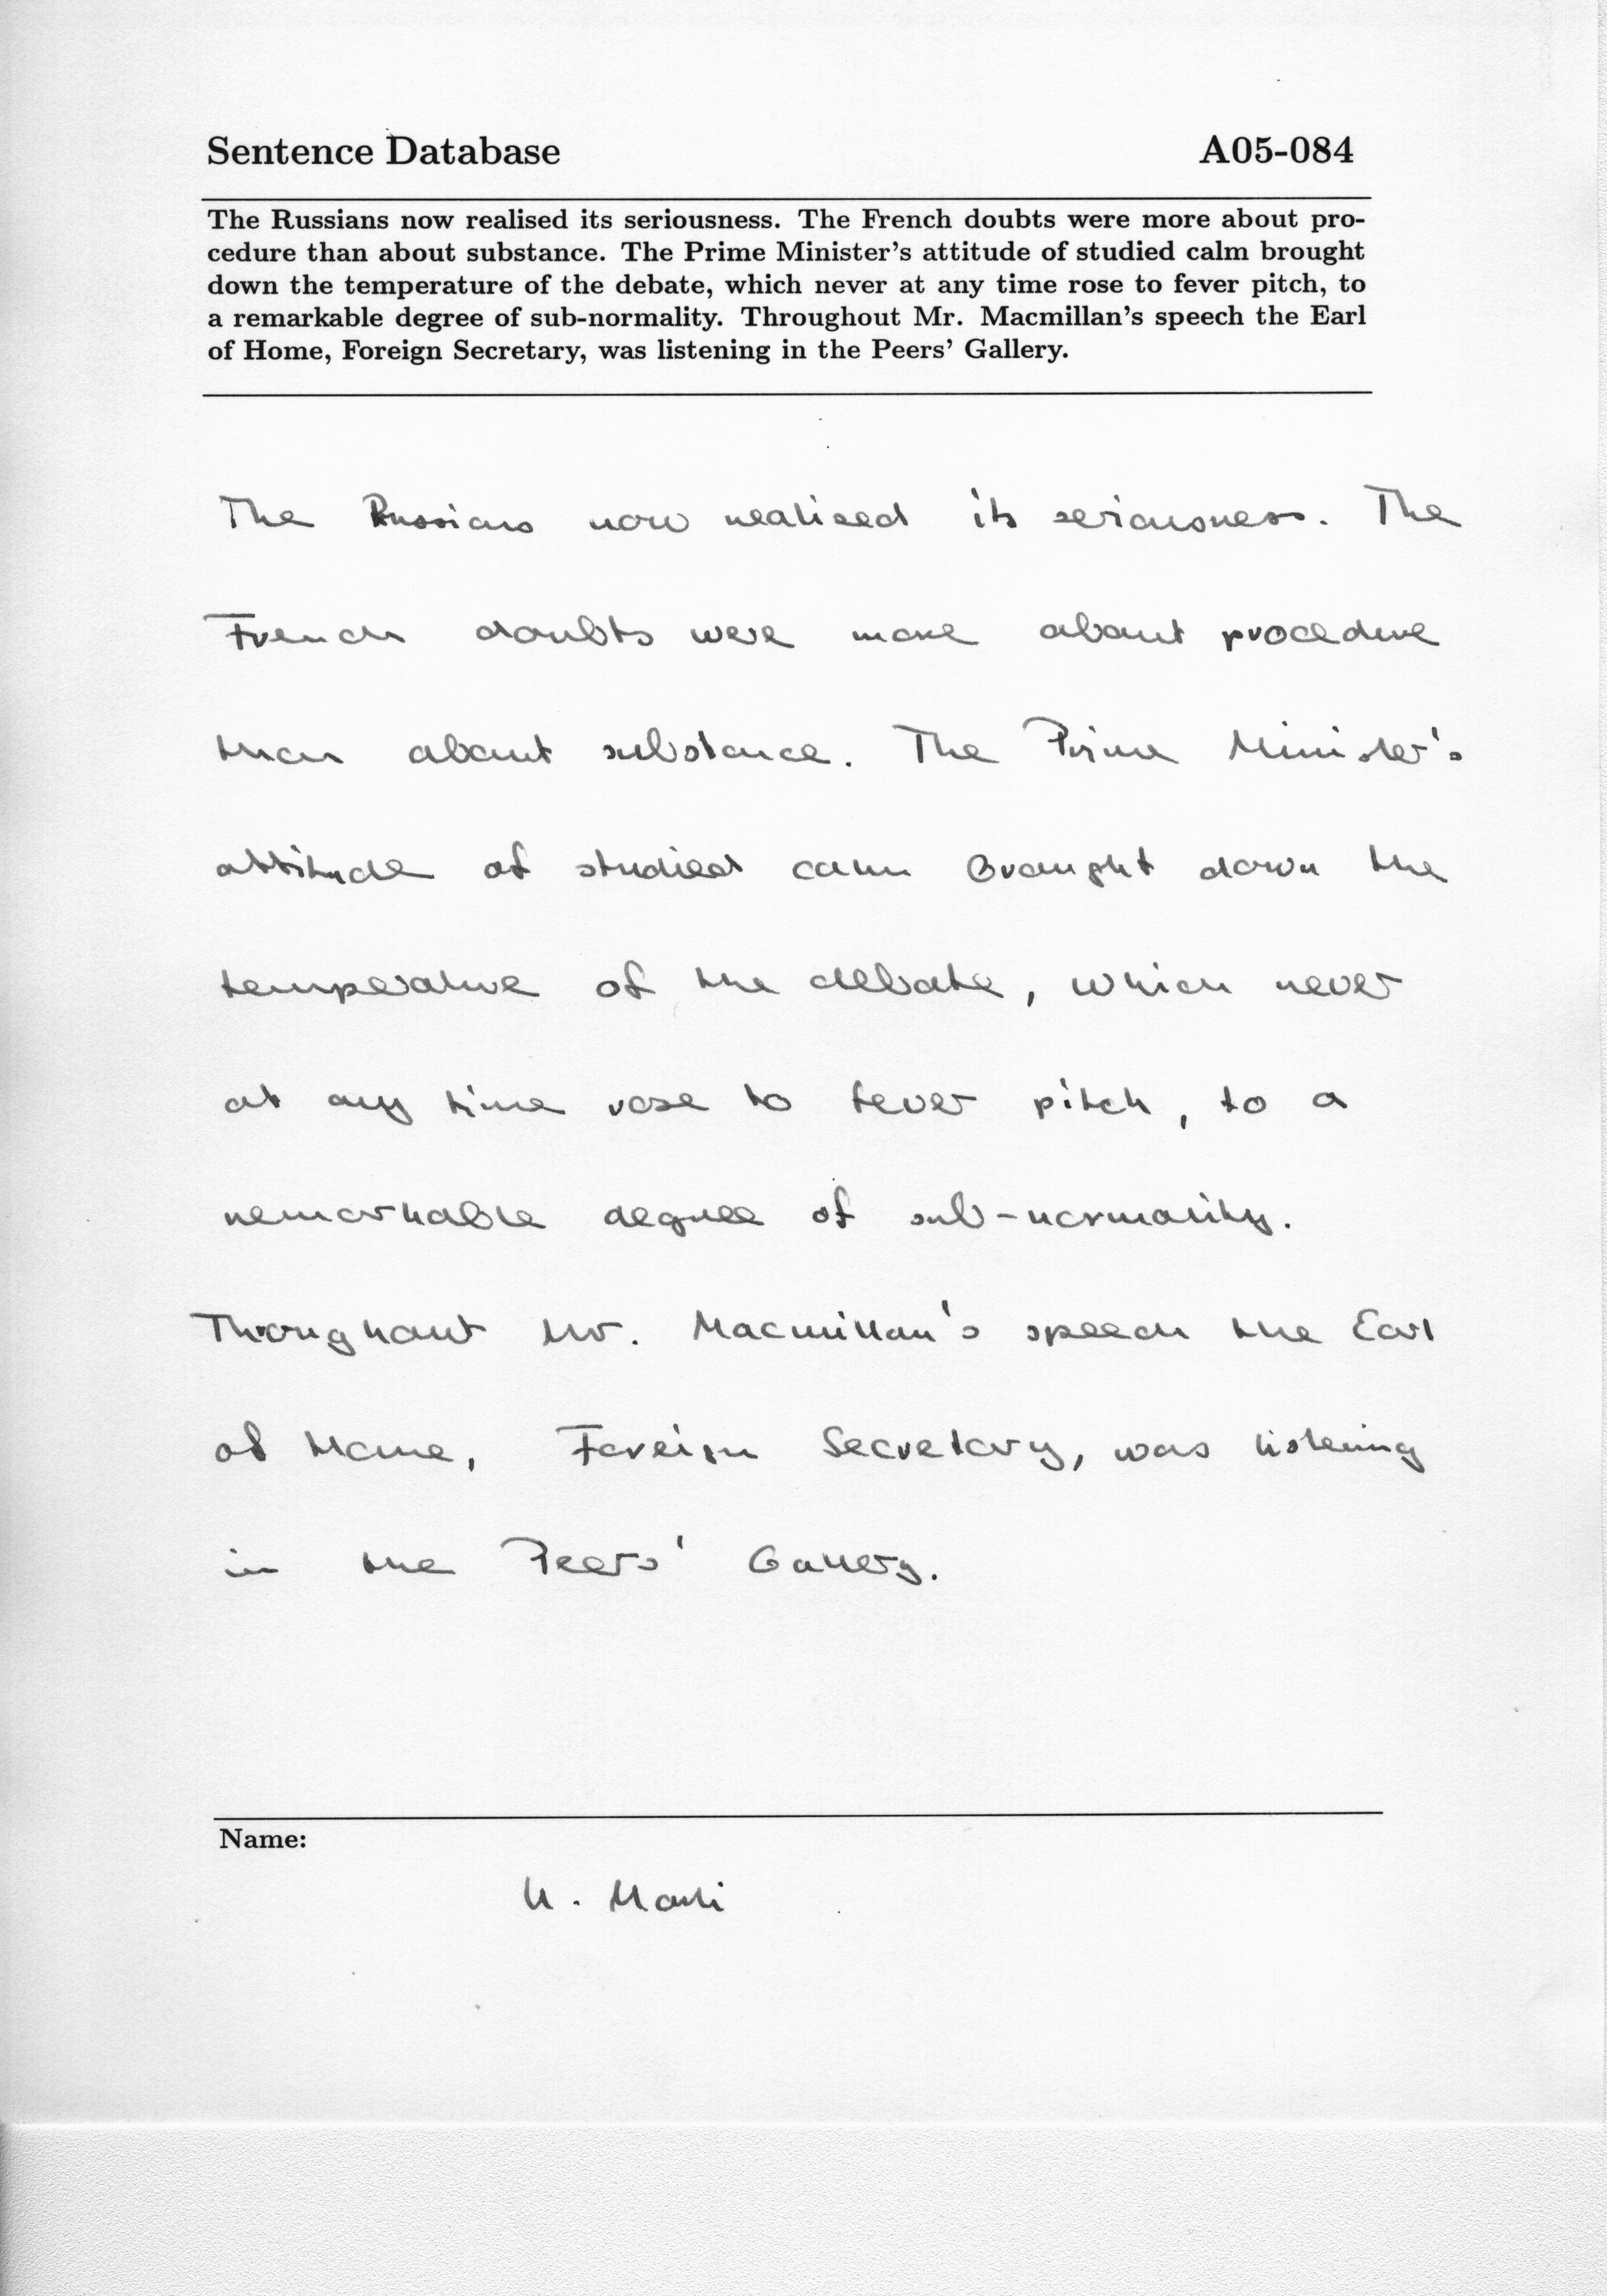 Sentence Database A05-084
The Russians now realised its seriousness. The French doubts were more about pro-
cedure than about substance. The Prime Minister's attitude of studied calm brought
down the temperature of the debate, which never at any time rose to fever pitch, to
a remarkable degree of sub-normality. Throughout Mr. Macmillan's speech the Earl
of Home, Foreign Secretary, was listening in the Peers' Gallery.
The Russians now realised its seriousness. The
French doubts were more about procedure
than about substance. The Prime Minister's
attitude of studied calm brought down the
temperature of the debate, which never
at any time rose to fever pitch, to a
remarkable degree of sub-normality.
Throughout Mr. Macmillan's speech the Earl
of Home, Foreign Secretary, was listening
in the Peers' Gallery.
Name: